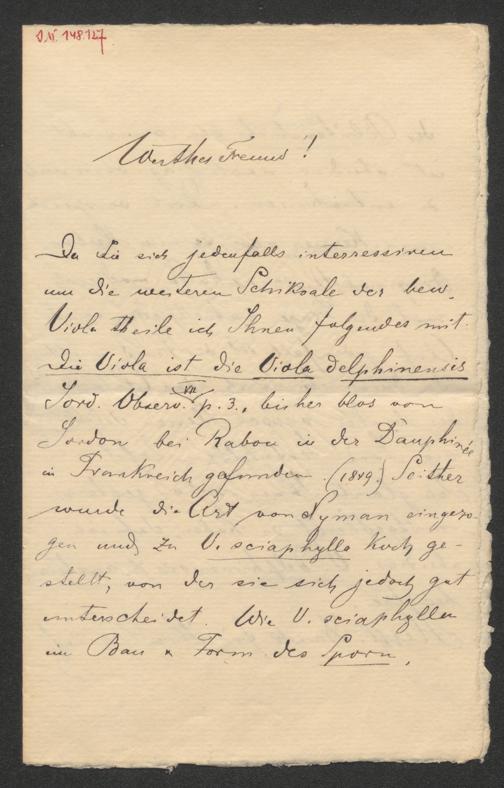 I.N. 148.127
Werther Freund!
Da Sie sich jedenfalls interressiren
um die weiteren Schiksale der bew.
Viola theile ich Ihnen folgendes mit.
Die Viola ist die Viola delphinensis
Jord. Observ. VII p. 3., bisher blos von
Jordon bei Rabou in der Dauphinée
in Frankreich gefunden. (1849.) Seither
wurde die Art von Nyman eingezo
gen und zu V. sciaphylla Koch ge-
stellt, von der sie sich jedoch gut
unterscheidet. Wie V. sciaphylla
im Bau & Form des Sporn,